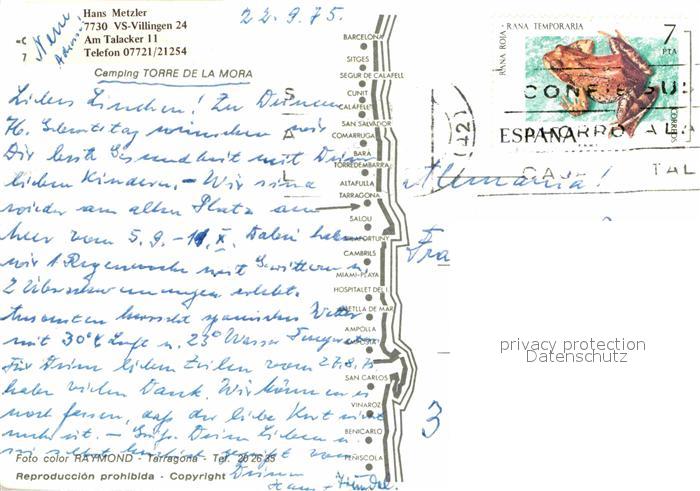 Neue
Adresse
Hans Metzler
7730 VS-Villingen 24
Am Talacker 11
Telefon 07721/21254
22.9.75.
Camping TORRE DE LA MORA
Liebes Linchen! Zu Deinem
76. Geburtstag wünschen wir
Dir beste Gesundheit mit Deinen
lieben Kindern. – Wir sind
wieder am alten Platz am
Meer vom 5.9. – 11.X. Dabei haben
wir 1 Regenwoche mit Gewittern u.
2 Überschwemmungen erlebt.
Ansonsten herrscht spanisches Wetter
mit 30° Luft u. 23° Wasser
Für Deine lieben Zeilen vom 27.8.75
habe vielen Dank. Wir können es
noch fassen, daß der liebe Kurt nicht
mehr ist. –
Deinen
Hans +
BARCELONA
SITGES
SEGUR DE CALAFELL
CUNIT
CALAFELL
SAN SALVADOR
COMARRUGA
BARA
TORREDEMBARRA
ALTAFULLA
TARRAGONA
SALOU
CAMBRILS
MIAMI-PLAYA
HOSPITALET DEL I.
AMPOLLA
SAN CARLOS
VINAROZ
BENICARLO
PEÑISCOLA
RANA ROJA - RANA TEMPORARIA
7
PTA
CORREOS
ESPAÑA
Alemania!
Fra
3
privacy protection
Datenschutz
Foto color RAYMOND - Tarragona - Tel. 20 26 35
Reproducción prohibida - Copyright